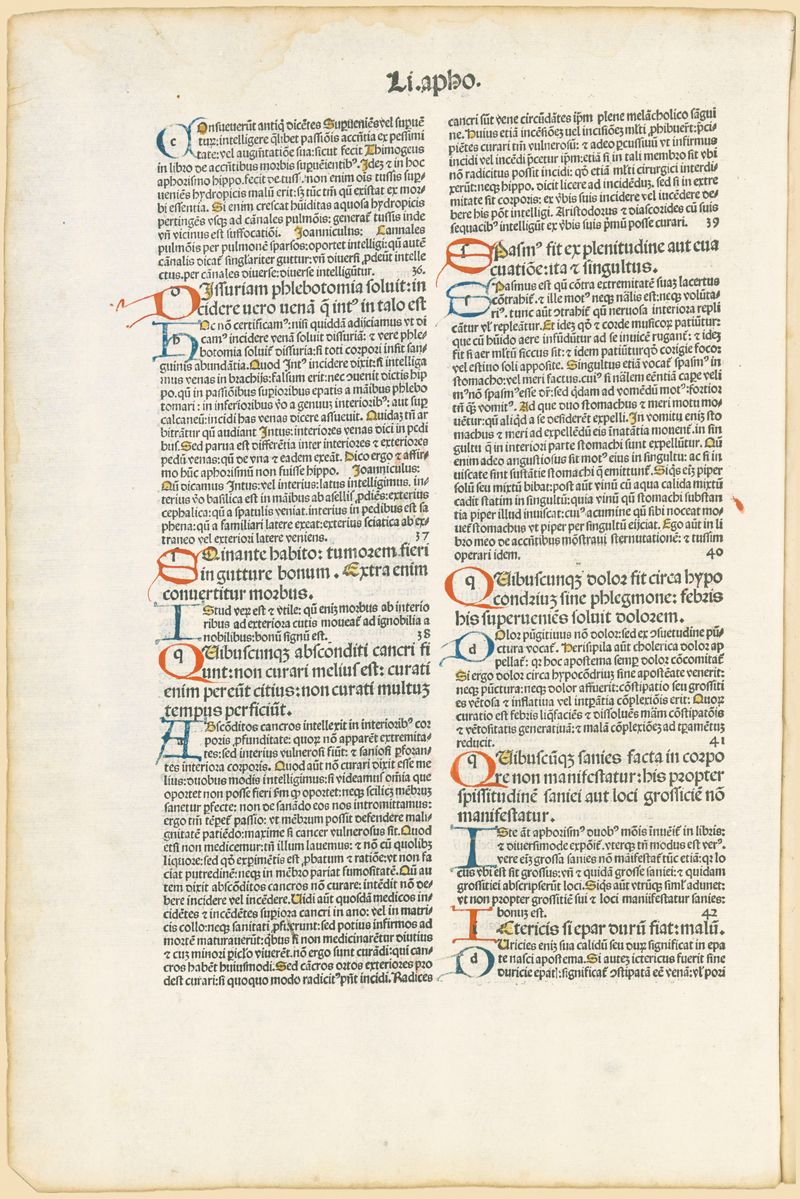 Li.apho.
COnsueuerūt antiq̄ dicētes Supueniēs vel supuē
tur: intelligere q̄libet passiōis accn̄tia ex pessimi
tate: vel augm̄tatiōe sua: sicut fecit Thimogeus
in libro de accn̄tibus morbis supueientibꝰ. Idez ⁊ in hoc
aphorismo hippo. fecit de tussi. non enim ois tussis sup⸗
ueniēs hydropicis malū erit: sꝫ tūc tm̄ qn̄ existat ex mor⸗
bi essentia. Si enim crescat hūiditas aquosa hydropicis
pertingēs vsqꝫ ad cānales pulmōis: generat̄ tussis inde
vn̄ vicinus est suffocatiōi. Joanniculus: Cannales
pulmōis per pulmonē sparsos: oportet intelligi: qn̄ autē
cānalis dicat̄ singlariter guttur: vn̄ diuersi ꝓdeūt intelle
ctus. per cānales diuerse: diuerse intelligūtur. 36.
DIssuriam phlebotomia soluit: in
cidere uero uenā q̄ intꝰ in talo est
HOc nō certificamꝰ: nisi quiddā adijciamus vt di
camꝰ incidere venā soluit dissuriā: ⁊ vere phle⸗
botomia soluit̄ dissuria: si toti corpori insit san⸗
guinis abundātia. Quod Intꝰ incidere dixit: si intelliga
mus venas in brachijs: falsum erit: nec ꝯuenit dictis hip
po. qn̄ in passiōibus supioribus epatis a māibus phlebo
tomari: in inferioribus vo a genuuꝫ interioribꝰ: aut sup
calcaneū: incidi has venas dicere assueuit. Quidaꝫ tn̄ ar
bitrātur qn̄ audiant Intus: interiores venas dici in pedi
bus. Sed parua est differētia inter interiores ⁊ exteriores
pedū venas: qn̄ de vna ⁊ eadem exeāt. Dico ergo ⁊ affir⸗
mo hūc aphorismū non fuisse hippo. Joanniculus:
Qn̄ dicamus Intus: vel interius: latus intelligimus. in⸗
terius vo basilica est in māibus ab asellis ꝓdiēs: exterius
cephalica: qn̄ a spatulis veniat. interius in pedibus est sa
phena: qn̄ a familiari latere exeat: exterius sciatica ab ex⸗
traneo vel exteriori latere veniens. 37
SQuinante habito: tumorem fieri
in gutture bonum. Extra enim
conuertitur morbus.
IStud verꝫ est ⁊ vtile: qn̄ enimꝫ morbus ab interio
ribus ad exteriora cutis moueat̄ ad ignobilia a
nobilibus: bonū signū est. 38
QUibuscunqꝫ absconditi cancri fi
unt: non curari melius est: curati
enim pereūt citius: non curati multuꝫ
tempus perficiūt.
ABscōditos cancros intellexit in interioribꝰ cor
poris ꝓfunditate: quoꝝ nō apparēt extremita⸗
tes: sed interius vulnerosi fiūt: ⁊ saniosi pforan⸗
tes interiora corporis. Quod aūt nō curari dixit esse me
lius: duobus modis intelligimus: si videamus omia que
oportet non posse fieri ꝑm qꝫ oportet: neqꝫ scilicꝫ mēbꝝ
sanetur pfecte: non de sanādo eos nos intromittamus:
ergo tn̄ tēpet̄ passio: vt mēbrum possit defendere mali⸗
gnitatē patiēdo: maxime si cancer vulnerosus sit. Quod
etsi non medicemur: tn̄ illum lauemus: ⁊ nō cū quolibꝫ
liquore: sed qd̄ expimētis est ꝓbatum ⁊ ratiōe: vt non fa
ciat putredinē: neqꝫ in mēbro pariat fumositatē. Qn̄ au
tem dixit abscōditos cancros nō curare: intēdit nō de⸗
bere incidere vel incēdere. Uidi aūt quosdā medicos in⸗
cidētes ⁊ incēdētes supiora cancri in ano: vel in matri⸗
cis collo: neqꝫ sanitati ꝓfuerunt: sed potius infirmos ad
mortē maturauerūt: qbus si non medicinarētur diutius
⁊ cuꝫ minori piclo viuerēt. nō ergo sunt curādi: qui can⸗
cros habēt huiusmodi. Sed cācros ortos exteriores pro
dest curari: si quoquo modo radicitꝰ pn̄t incidi. Radices
cancri sūt vene circūdātes ip̄m plene melācholico sāgui
ne. Huius etiā incēsiōeꝫ uel incisiōeꝫ ml̄ti ꝓhibuer̄t: p̄ci⸗
piētes curari tm̄ vulnerosū: ⁊ adeo pcussiuū vt infirmus
incidi vel incēdi p̄cetur ip̄m: etiā si in tali membro sit vbi
nō radicitus possit incidi: qd̄ etiā ml̄ti cirurgici interdi⸗
xerūt: neqꝫ hippo. dicit licere ad incidēduꝫ. sed si in extre
mitate sit corporis: ex v̄bis suis incidere vel iucēdere de⸗
bere his pōt intelligi. Aristodorus ⁊ diascorides cū suis
sequacibꝰ intelligūt ex v̄bis suis p̄mū posse curari. 39
SPasmꝰ fit ex plenitudine aut eua
cuatiōe: ita ⁊ singultus.
SPasmus est qn̄ cōtra extremitatē suaꝫ lacertus
cōtrahit̄. ⁊ ille motꝰ neqꝫ nālis est: neqꝫ volūta⸗
riꝰ. tunc aūt ꝯtrahit̄ qn̄ neruosa interiora repli
cātur vl̄ repleātur. Et ideꝫ qd̄ ⁊ corde musicoꝝ patiūtur:
que cū hūido aere infūdūtur ad se inuicē rugant̄: ⁊ ideꝫ
fit si aer ml̄tū siccus sit: ⁊ idem patiūtur qd̄ corigie focoꝫ
vel estiuo soli apposite. Singultus etiā vocat̄ spasmꝰ in
stomacho: vel meri factus. cuiꝰ si nālem eēntiā cape veli
mꝰ nō spasmꝰ esse dr̄: sed qdam ad vomēdū motꝰ: fortior
tn̄ q̄ꝫ vomitꝰ. Ad que duo stomachus ⁊ meri motu mo⸗
uētur: qn̄ aliqd̄ a se desiderēt expelli. In vomitu enimꝫ sto
machus ⁊ meri ad expellēdū eis īnatātia mouent̄. in sin
gultu q̄ in interiori parte stomachi sunt expellūtur. Qn̄
enim adeo angustiosus sit motꝰ eius in singultu: ac si in
uiscate sint substātie stomachi q̄ emittunt̄. Siqs eimꝫ piper
solū seu mixtū bibat: post aūt vinū cū aqua calida mixtū
cadit statim in singultū: quia vinū qn̄ stomachi substan
tia piper illud inuiscat: cuiꝰ acumine qn̄ sibi noceat mo⸗
uet̄ stomachus vt piper per singultū eijciat. Ego aūt in li
bro meo de accn̄tibus mōstraui sternutationē: ⁊ tussim
operari idem. 40
QUibuscunqꝫ dolor fit circa hypo
condriuꝫ sine phlegmone: febris
his superueniēs soluit dolorem.
DOlor pūgitiuus nō dolor: sed ex ꝯsuetudine pū⸗
ctura vocat̄. Herisipila aūt cholerica dolor ap
pellat̄: qꝛ hoc apostema semp dolor cōcomitat̄
Si ergo dolor circa hypocōdrius sine apostēate venerit:
neqꝫ pūctura: neqꝫ dolor affuerit: cōstipatio seu grossiti
es vētosa ⁊ inflatiua vel intpantia cōplexiōis erit: Quoꝝ
curatio est febris liq̄faciēs ⁊ dissoluēs mām cōstipatōis
⁊ vētositatis generatiuā: ⁊ malā cōplexiōeꝫ ad tpamētuꝫ
reducit. 41
QUibuscūqꝫ sanies facta in corpo
re non manifestatur: his propter
spissitudinē saniei aut loci grossiciē nō
manifestatur.
ISte āt aphorismꝰ duobꝰ mōis īnuēit̄ in libris:
⁊ diuersimode expōit̄. vterqꝫ tn̄ modus est verꝰ.
vere eimꝫ grossa sanies nō māifestat̄ tūc etiā: qꝛ lo
cus vbi est sit grossus: vn̄ ⁊ quidā grosse saniei: ⁊ quidam
grossitiei abscripserūt loci. Siqs aūt vtrūqꝫ siml̄ adunet:
vt non propter grossitiē sui ⁊ loci manifestatur sanies:
bonuꝫ est. 42
ICtericis si epar durū fiat: malū.
DUricies enimꝫ sua calidū seu duꝝ significat in epa
te nasci apostema. Si auteꝫ ictericus fuerit sine
duricie epat̄: significat̄ ꝯstipatā eē venā: vl̄ pori